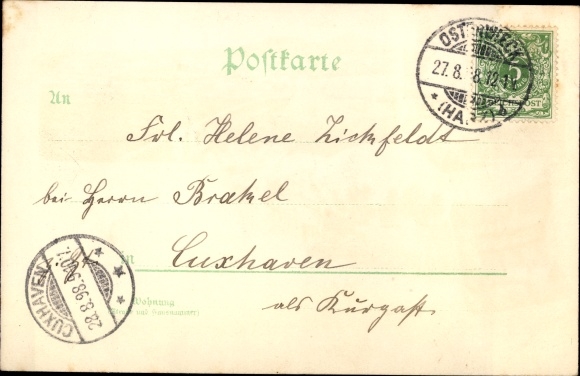 Postkarte
OSTERWIECK
27.8.98.12-1N.
* (HARZ) *
An
Frl. Helene Zickfeldt
bei Herrn Brakel
in Cuxhaven
als Kurgast
Wohnung
(Straße und Hausnummer)
CUXHAVEN
28.8.98.